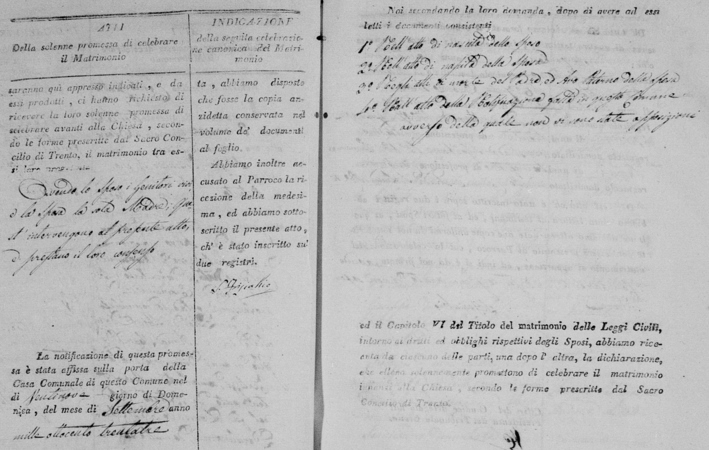 ATTI
Della solenne promessa di celebrare
il Matrimonio
saranno quì appresso indicati, e da
essi prodotti, ci hanno richiesto di
ricevere la loro solenne promessa di
celebrare avanti alla Chiesa, secon-
do le forme prescritte dal Sacro Con-
cilio di Trento, il matrimonio tra es-
si loro
lo sposo i genitori
la sposa la sola Madre
intervengono al presente atto,
e prestano il loro consenso
La notificazione di questa promes-
sa è stata affissa sulla porta della
Casa Comunale di questo Comune nel
dì giorno di Dome-
nica, del mese di Settembre anno
mille ottocento trentatre
INDICAZIONE
della seguita celebrazio-
ne canonica del Matri-
monio
ta, abbiamo disposto
che fosse la copia an-
zidetta conservata nel
volume de' documenti
al foglio.
Abbiamo inoltre ac-
cusato al Parroco la ri-
cezione della medesi-
ma, ed abbiamo sotto-
scritto il presente atto,
ch' è stato inscritto su'
due registri.
Noi secondando la loro domanda, dopo di avere ad essi
letti i documenti consistenti
1º Nell' atto di nascita dello sposo
2º Nell' atto di nascita della sposa
atti di morte del Padre ed Avo Paterno della sposa
4º Nell' atto della Notificazione fatta in questo Comune
avverso della quale non vi sono state opposizioni
ed il Capitolo VI del Titolo del matrimonio delle Leggi Civili,
intorno ai dritti ed obblighi rispettivi degli Sposi, abbiamo rice-
vuta da ciascuna delle parti, una dopo l' altra, la dichiarazione,
che elleno solennemente promettono di celebrare il matrimonio
innanti alla Chiesa, secondo le forme prescritte dal Sacro
Concilio di Trento.